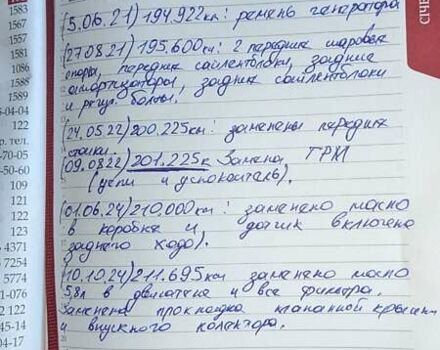 (5.06.21) 194.922км: ремень генератора
(27.08.21) 195.600км: 2 передние шаровые
опоры, передние сайлентблоки, задние
амортизаторы, задние сайлентблоки
и регул. болты.
(24.05.22) 200.225км: заменены передние
стойки.
(09.0822) 201.225к Замена ГРМ
(цепи и успокоитель).
(01.06.24) 210.000км: заменено масло
в коробке и датчик включена
заднего хода).
(10.10.24) 211.695км заменено масло
5,8л в двигателе и все фильтра.
Заменена прокладка клапанной крышки
и впускного колектора.
1583
1567
1557
1081
1086
1588
1589
-04-04
122
р. тел.
-70-05
-50-60
109
103
121
122
123
4371
7257
5774
-1-076
02 122
45-14
04-17
СІЧЕ